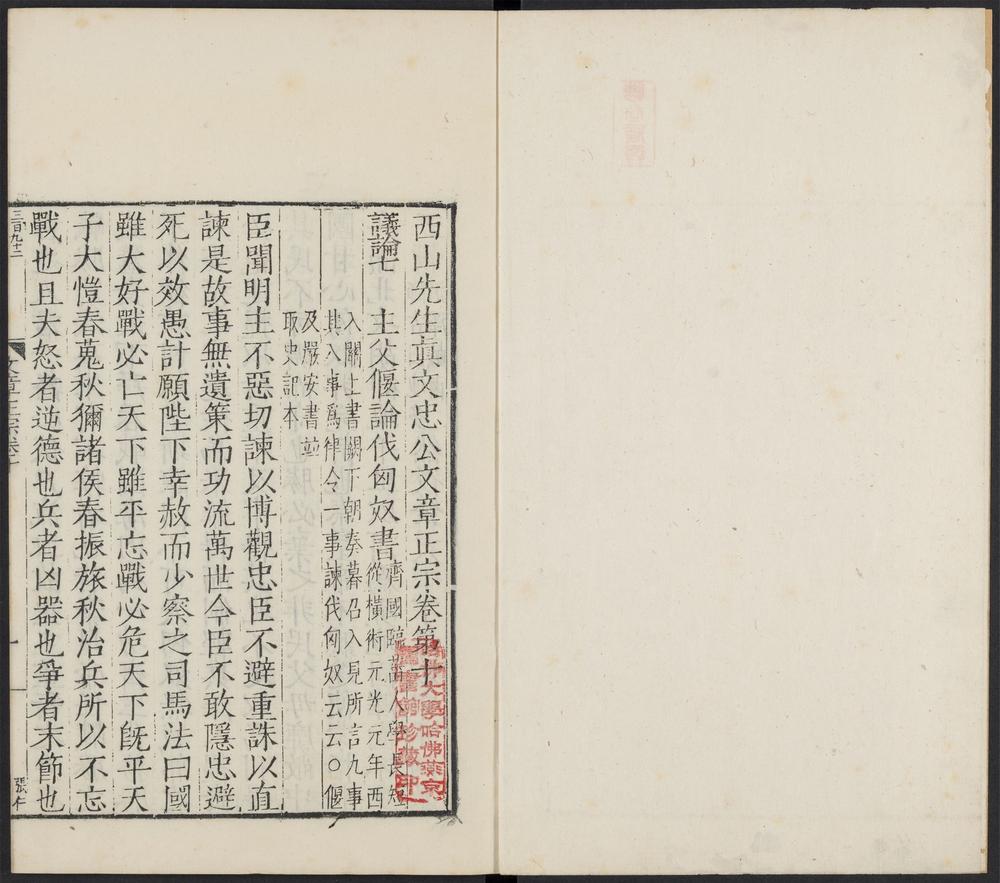 西山先生真文忠公文章正宗卷第十
議論七
主父偃論伐匈奴書
齊國臨菑人學長短
從橫術元光元年西
入關上書闕下朝奏暮召入見所言九事
其八事為律令一事諫伐匈奴云云○偃
及嚴安書並
取史記本
臣聞明主不惡切諫以博觀忠臣不避重誅以直
諫是故事無遺策而功流萬世今臣不敢隱忠避
死以效愚計願陛下幸赦而少察之司馬法曰國
雖大好戰必亡天下雖平忘戰必危天下旣平天
子大愷春蒐秋獮諸侯春振旅秋治兵所以不忘
戰也且夫怒者逆德也兵者凶器也爭者末節也
三百九十二
文章正宗卷十
一
張仁
哈佛大學哈佛燕京
圖書館珍藏印